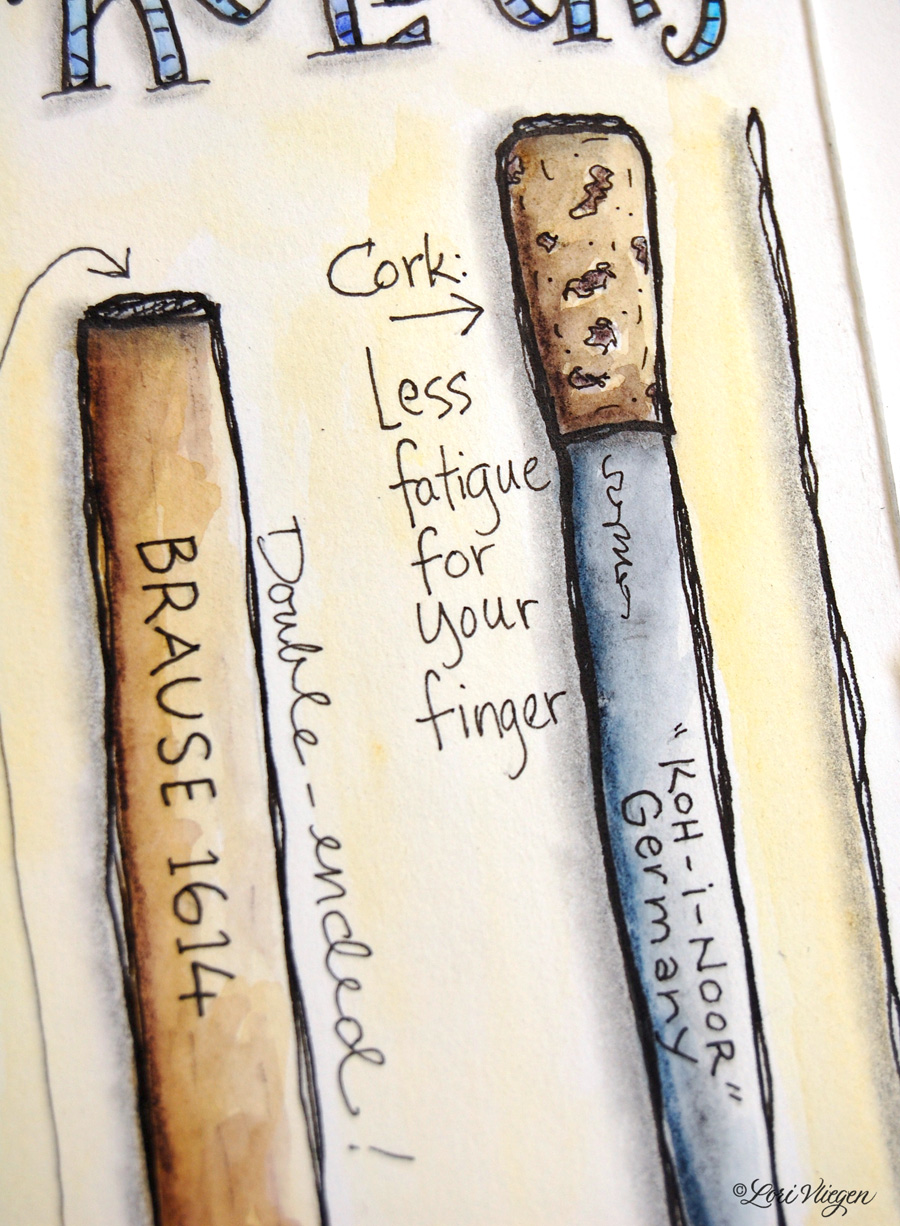 Cork:
Less
fatigue
for
your
finger
BRAUSE 1614
Double-ended!
"KOH-i-NOOR"
Germany
©Lori Vliegen